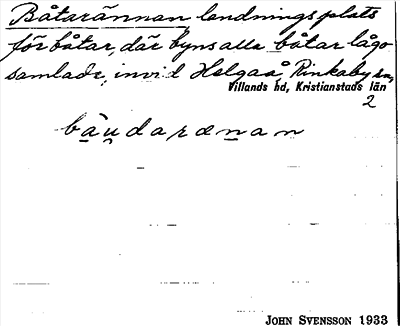 Båtarännan landningsplats
för båtar, där byns alla båtar lågo
samlade, invid Helgaå, Rinkaby sn,
Villands hd, Kristianstads län
2
bạ̈u̯darænan
JOHN SVENSSON 1933